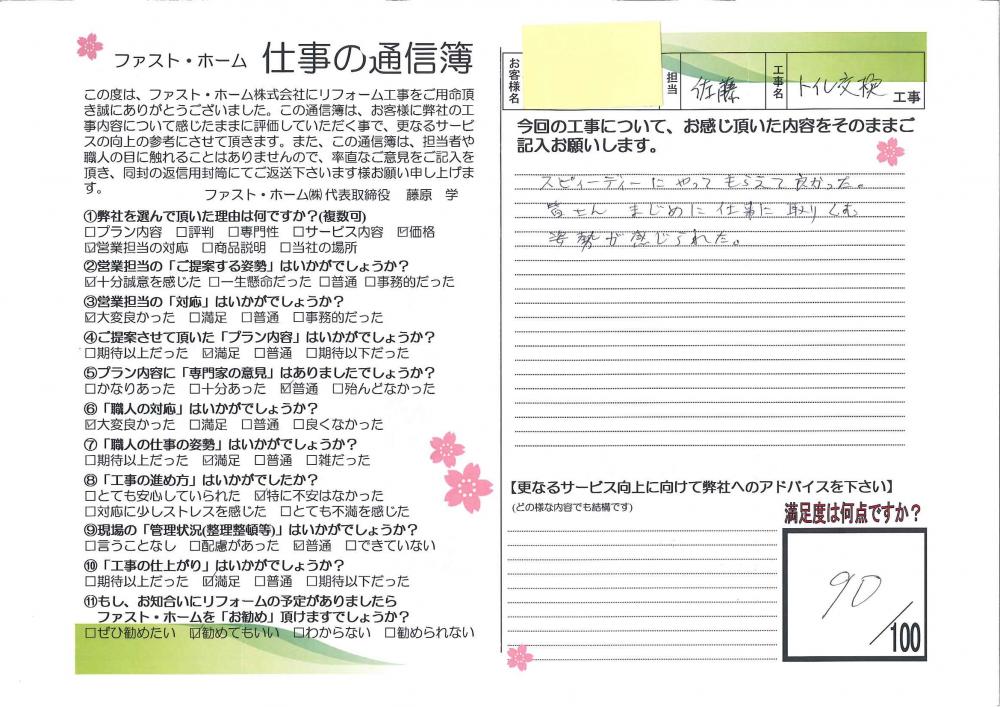 ファスト・ホーム 仕事の通信簿
この度は、ファスト・ホーム株式会社にリフォーム工事をご用命頂
き誠にありがとうございました。この通信簿は、お客様に弊社の工
事内容について感じたままに評価していただく事で、更なるサービ
スの向上の参考にさせて頂きます。また、この通信簿は、担当者や
職人の目に触れることはありませんので、率直なご意見をご記入を
頂き、同封の返信用封筒にてご返送下さいます様お願い申し上げま
す。
ファスト・ホーム㈱ 代表取締役 藤原 学
①弊社を選んで頂いた理由は何ですか?(複数可)
□プラン内容 □評判 □専門性 □サービス内容 ☑価格
☑営業担当の対応 □商品説明 □当社の場所
②営業担当の「ご提案する姿勢」はいかがでしょうか?
☑十分誠意を感じた □一生懸命だった □普通 □事務的だった
③営業担当の「対応」はいかがでしょうか?
☑大変良かった □満足 □普通 □事務的だった
④ご提案させて頂いた「プラン内容」はいかがでしょうか?
□期待以上だった ☑満足 □普通 □期待以下だった
⑤プラン内容に「専門家の意見」はありましたでしょうか?
□かなりあった □十分あった ☑普通 □殆んどなかった
⑥「職人の対応」はいかがでしょうか?
☑大変良かった □満足 □普通 □良くなかった
⑦「職人の仕事の姿勢」はいかがでしょうか?
□期待以上だった ☑満足 □普通 □雑だった
⑧「工事の進め方」はいかがでしたか?
□とても安心していられた ☑特に不安はなかった
□対応に少しストレスを感じた □とても不満を感じた
⑨現場の「管理状況(整理整頓等)」はいかがでしょうか?
□言うことなし □配慮があった ☑普通 □できていない
⑩「工事の仕上がり」はいかがでしょうか?
□期待以上だった ☑満足 □普通 □期待以下だった
⑪もし、お知合いにリフォームの予定がありましたら
ファスト・ホームを「お勧め」頂けますでしょうか?
□ぜひ勧めたい ☑勧めてもいい □わからない □勧められない
お客様名 担当 佐藤 工事名 トイレ交換 工事
今回の工事について、お感じ頂いた内容をそのままご
記入お願いします。
スピィーディーにやってもらえて良かった。
皆さん まじめに仕事に取りくむ
姿勢が感じられた。
【更なるサービス向上に向けて弊社へのアドバイスを下さい】
(どの様な内容でも結構です)
満足度は何点ですか?
90
/100